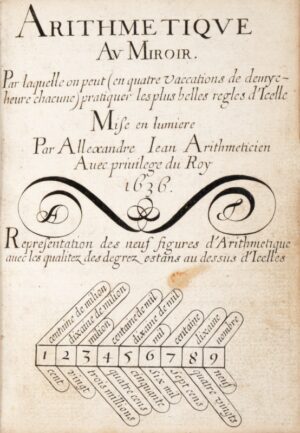 ARITHMETIQVE
AV MIROIR.
Par laquelle on peut (en quatre vaccations de demye-
heure chacune) pratiquer les plus belles regles d'Icelle
Mise en lumiere
Par Allexandre Iean Arithmeticien
Auec priuilege du Roy
1636.
A I
Representation des neuf figures d'Arithmetique
auec les qualitez des degrez estans au dessus d'Icelles
centaine de milion
dixaine de milion
milion
centaine de mil
dixaine de mil
mil
centaine
dixaine
nombre
1 2 3 4 5 6 7 8 9
cent
vingt
trois millions
quatre cens
cinquante
six mil
sept cens
quatre vingts
neuf